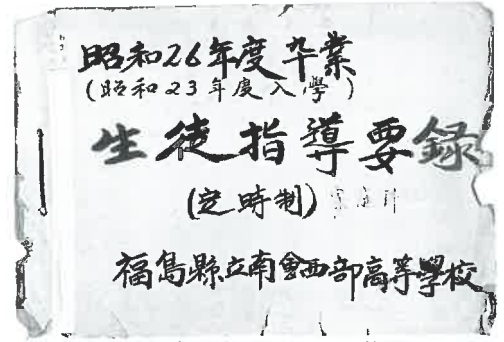 昭和26年度卒業
(昭和23年度入學)
生徒指導要録
(定時制)
福島縣立南會西部高等學校